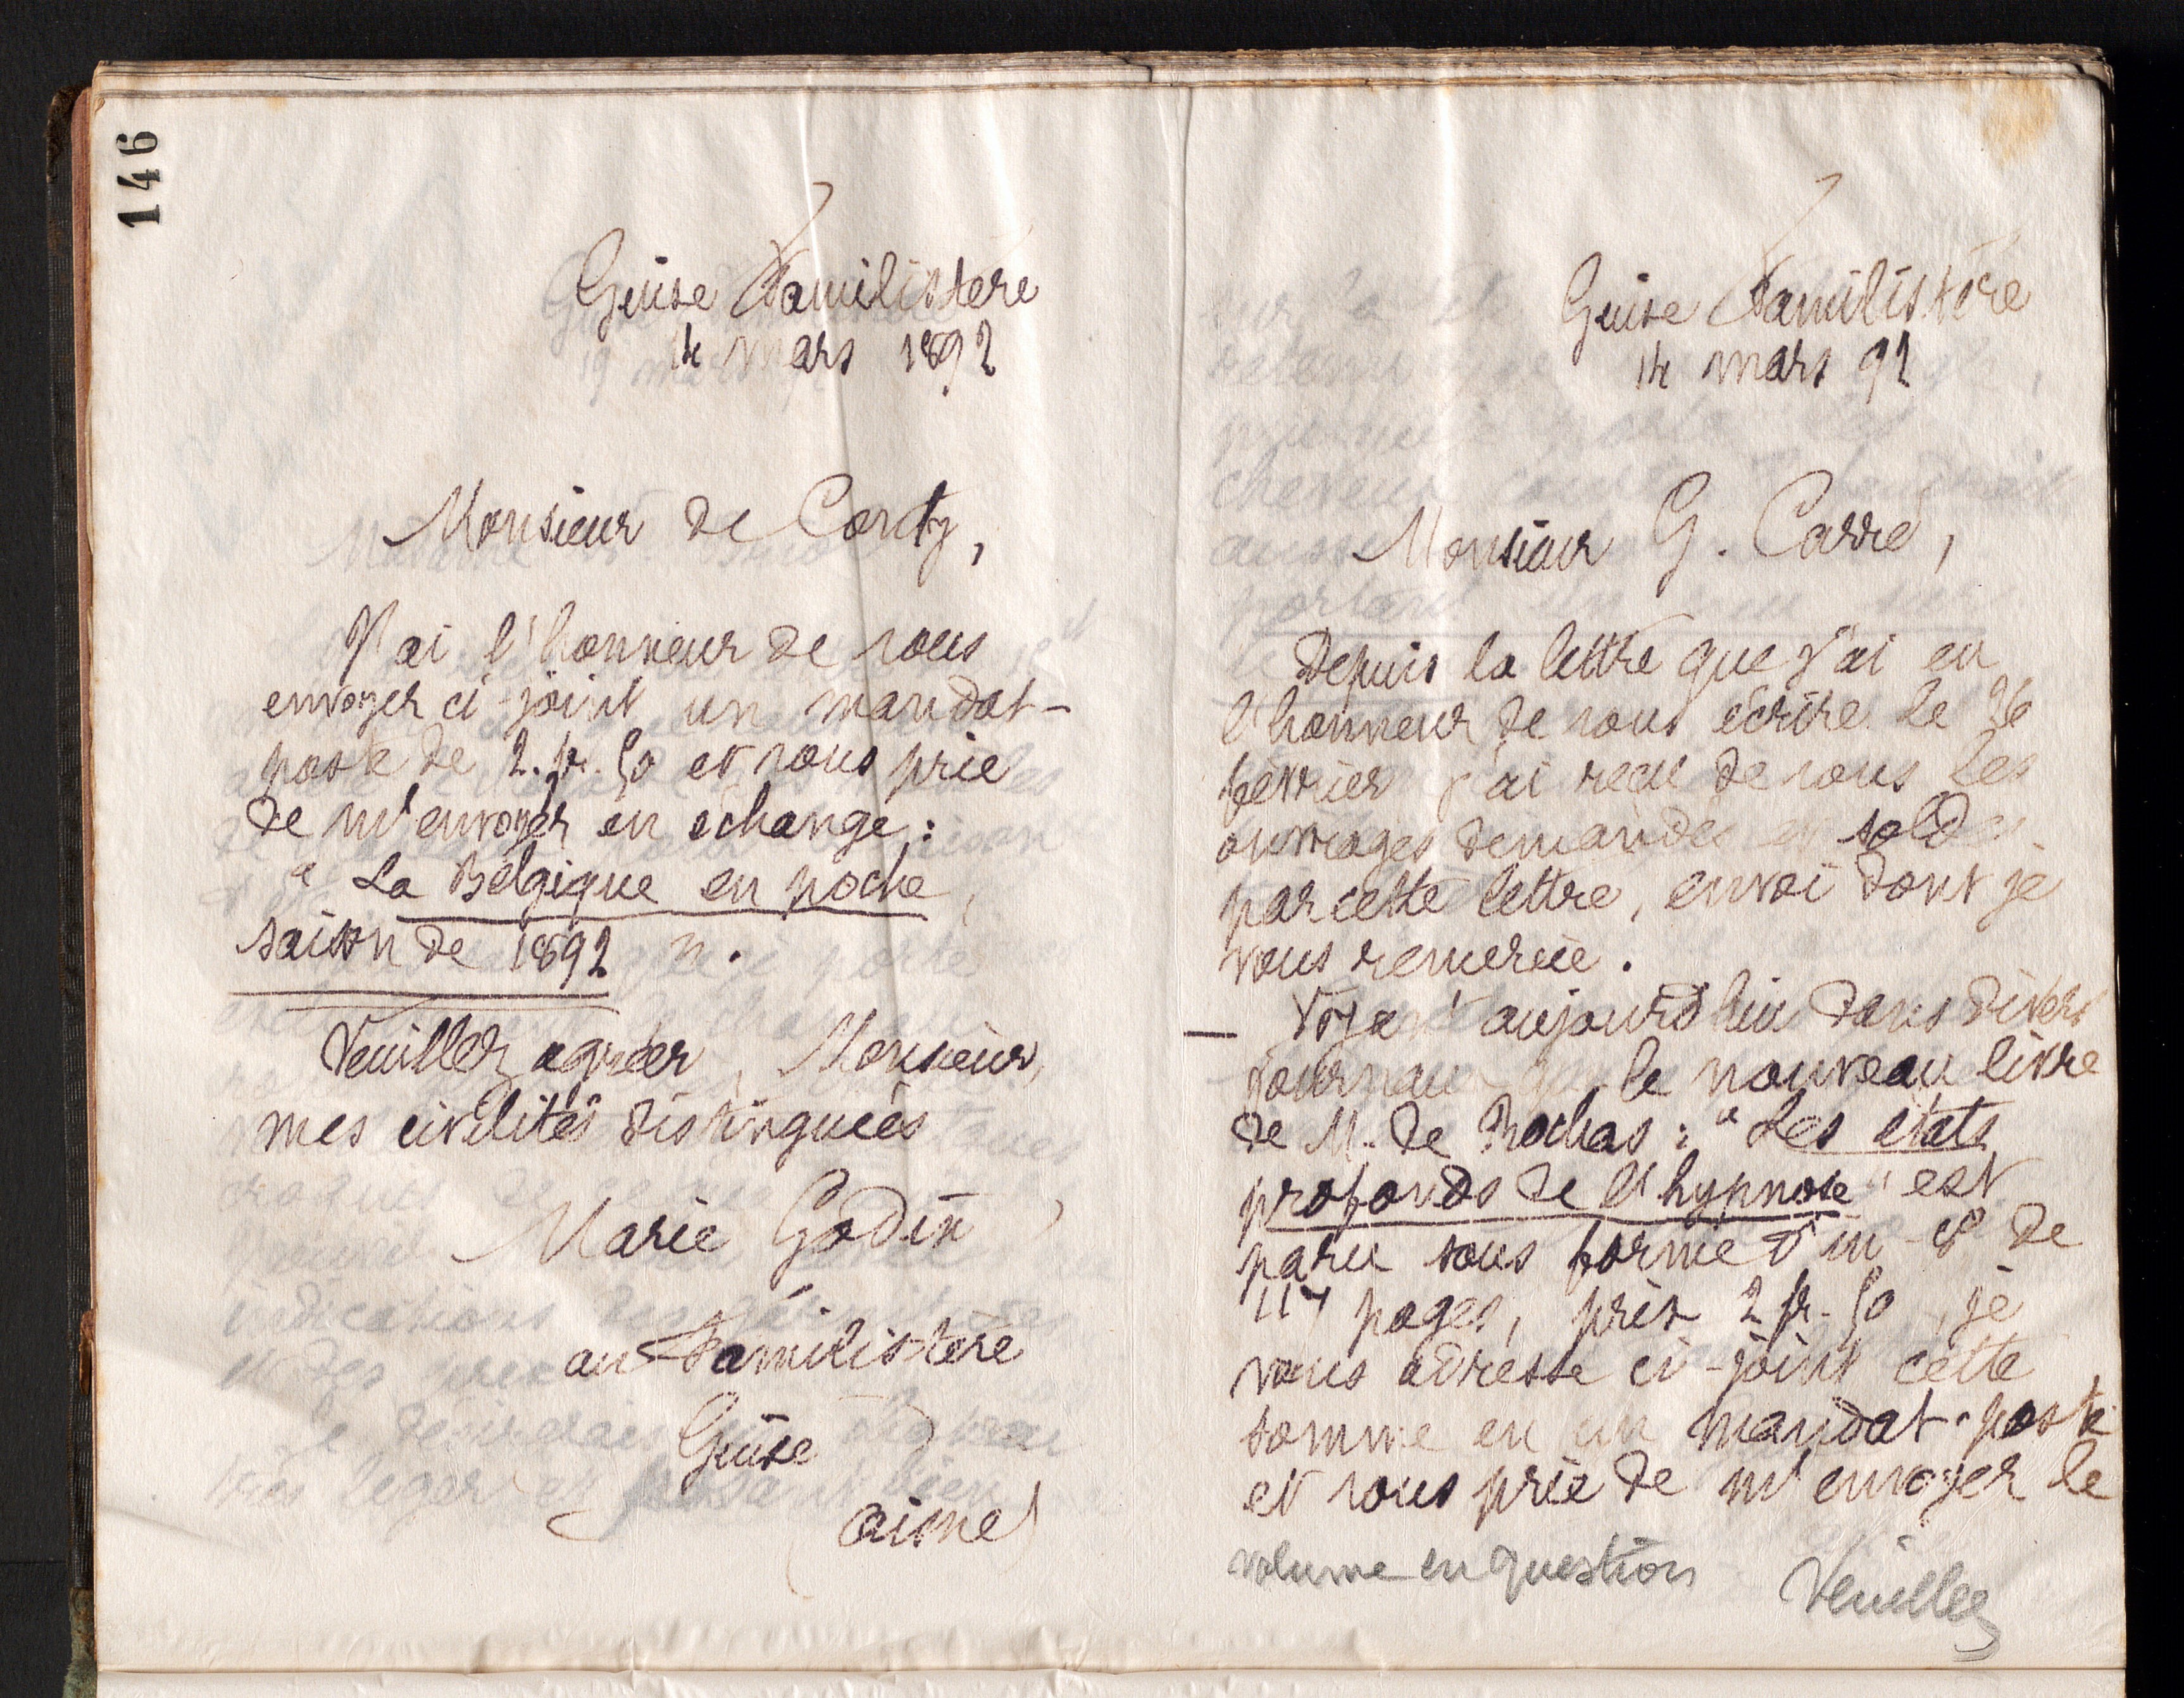 146
Guise Familistère
14 mars 1892
Monsieur de Conty,
J'ai l'honneur de vous
envoyer ci-joint un mandat-
poste de 2.fr.50 et vous prie
de m'envoyer en échange :
" La Belgique en poche,
saison de 1892 ".
Veuillez agréer, Monsieur,
mes civilités distinguées
Marie Godin
au Familistère
Guise
(Aisne)
Guise Familistère
14 mars 92
Monsieur G. Carré,
Depuis la lettre que j'ai eu
l'honneur de vous écrire le 26
février j'ai reçu de vous les
ouvrages demandés et soldés
par cette lettre, envoi dont je
vous remercie.
— Voyant aujourd'hui dans divers
journaux que le nouveau livre
de M. de Rochas : " Les états
profonds de l'hypnose " est
paru sous forme d'in-8º de
117 pages, prix 2 fr. 50, je
vous adresse ci-joint cette
somme en un mandat-poste
et vous prie de m'envoyer le
volume en question Veuillez